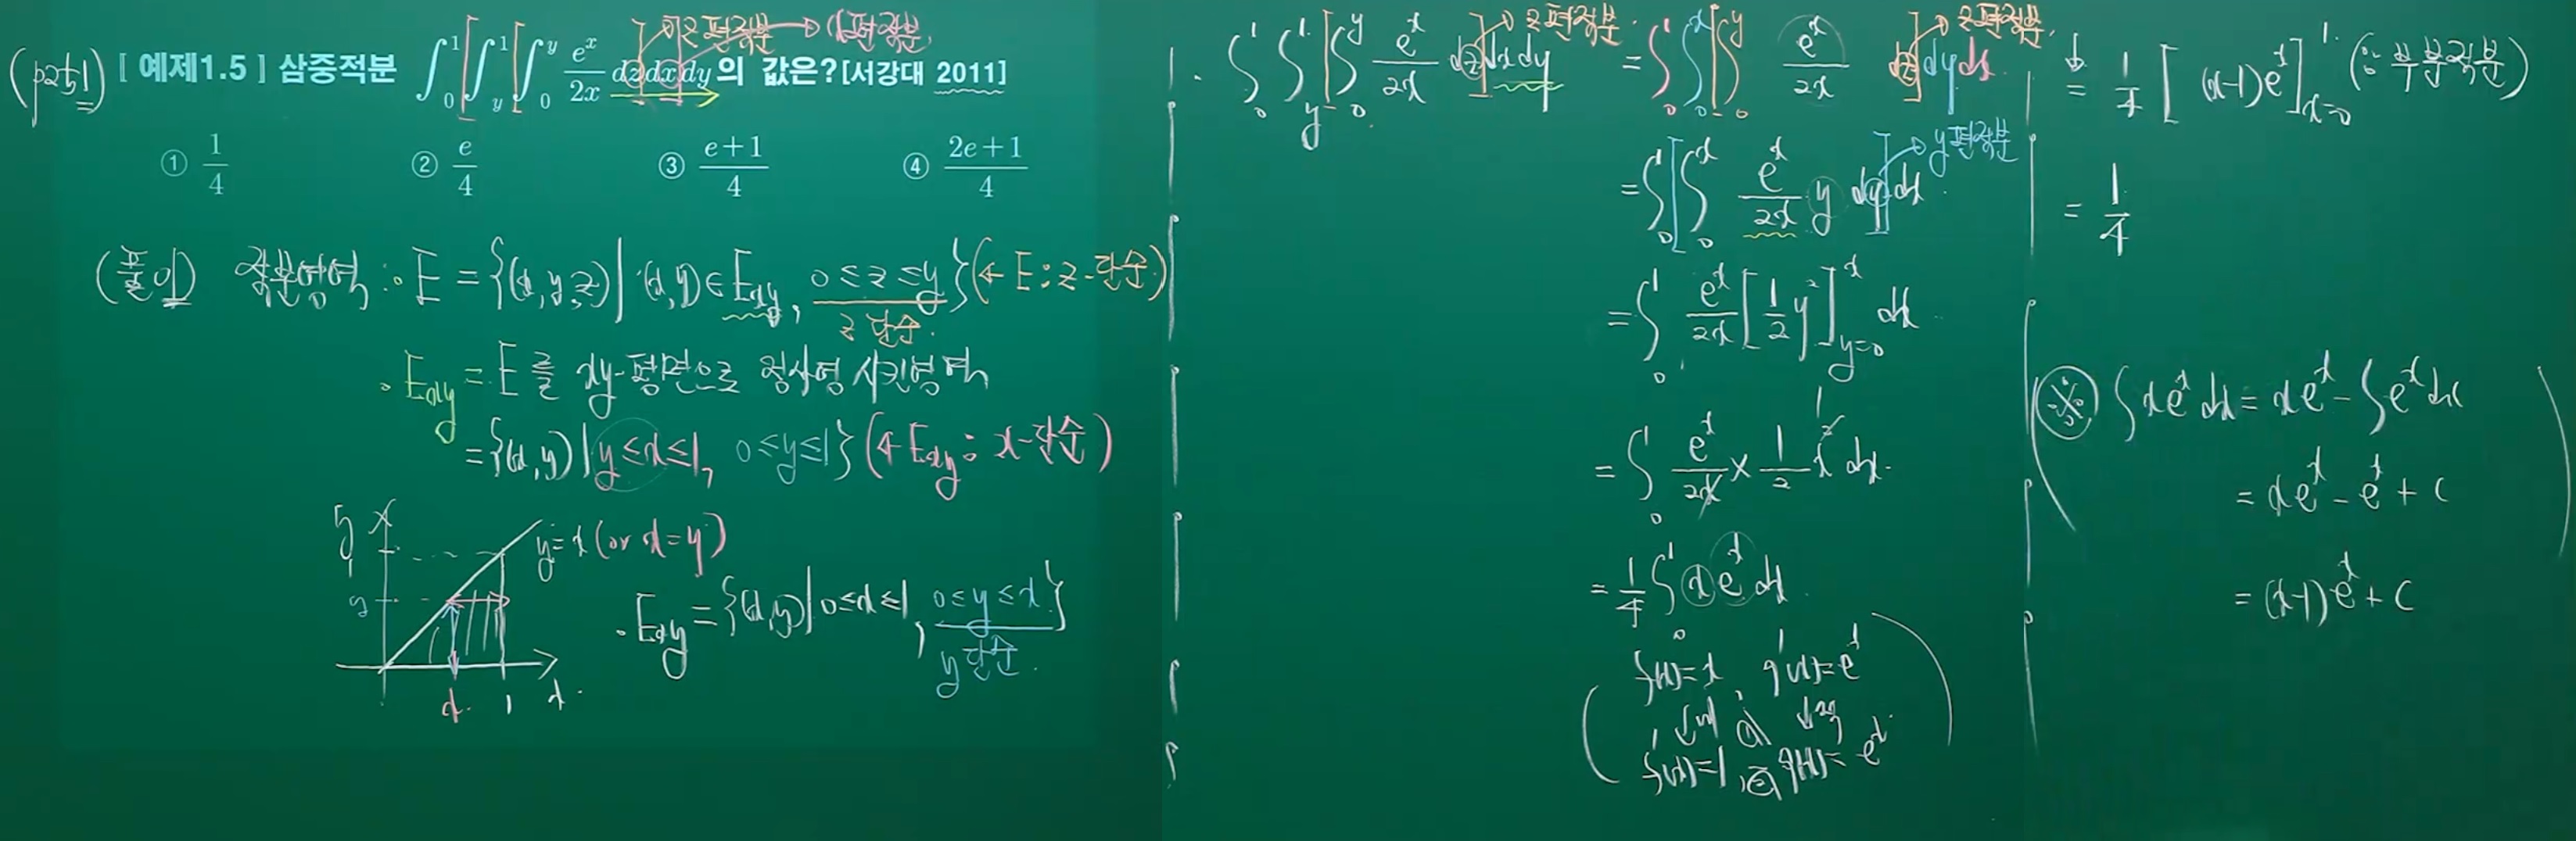 (p251) [ 예제1.5 ] 삼중적분 ∫₀¹∫_y¹∫₀^y e^x/2x dzdxdy의 값은?[서강대 2011]
z편적분 x편적분
① 1/4 ② e/4 ③ (e+1)/4 ④ (2e+1)/4
(풀이) 적분영역 : · E = {(x,y,z) | (x,y)∈E_xy, 0≤z≤y} (← E : z-단순)
z 단순
· E_xy = E를 xy-평면으로 정사영 시킨영역
= {(x,y) | y≤x≤1, 0≤y≤1} (← E_xy : x-단순)
y
y=x (or x=y)
1
y
x 1 x
· E_xy = {(x,y) | 0≤x≤1, 0≤y≤x}
y 단순
· ∫₀¹∫_y¹[∫₀^y e^x/2x dz]dxdy = ∫₀¹∫₀^x[∫₀^y e^x/2x dz]dydx
z편적분 z편적분
= ∫₀¹[∫₀^x e^x/2x y dy]dx
y편적분
= ∫₀¹ e^x/2x [1/2 y²]_{y=0}^x dx
= ∫₀¹ e^x/2x × 1/2 x² dx
= 1/4 ∫₀¹ x e^x dx
f(x)=x, g'(x)=e^x
↓미 ↓적
f'(x)=1, g(x)=e^x
= 1/4 [(x-1)e^x]_{x=0}^1 (∵ 부분적분)
= 1/4
※ ∫xe^x dx = xe^x - ∫e^x dx
= xe^x - e^x + C
= (x-1)e^x + C